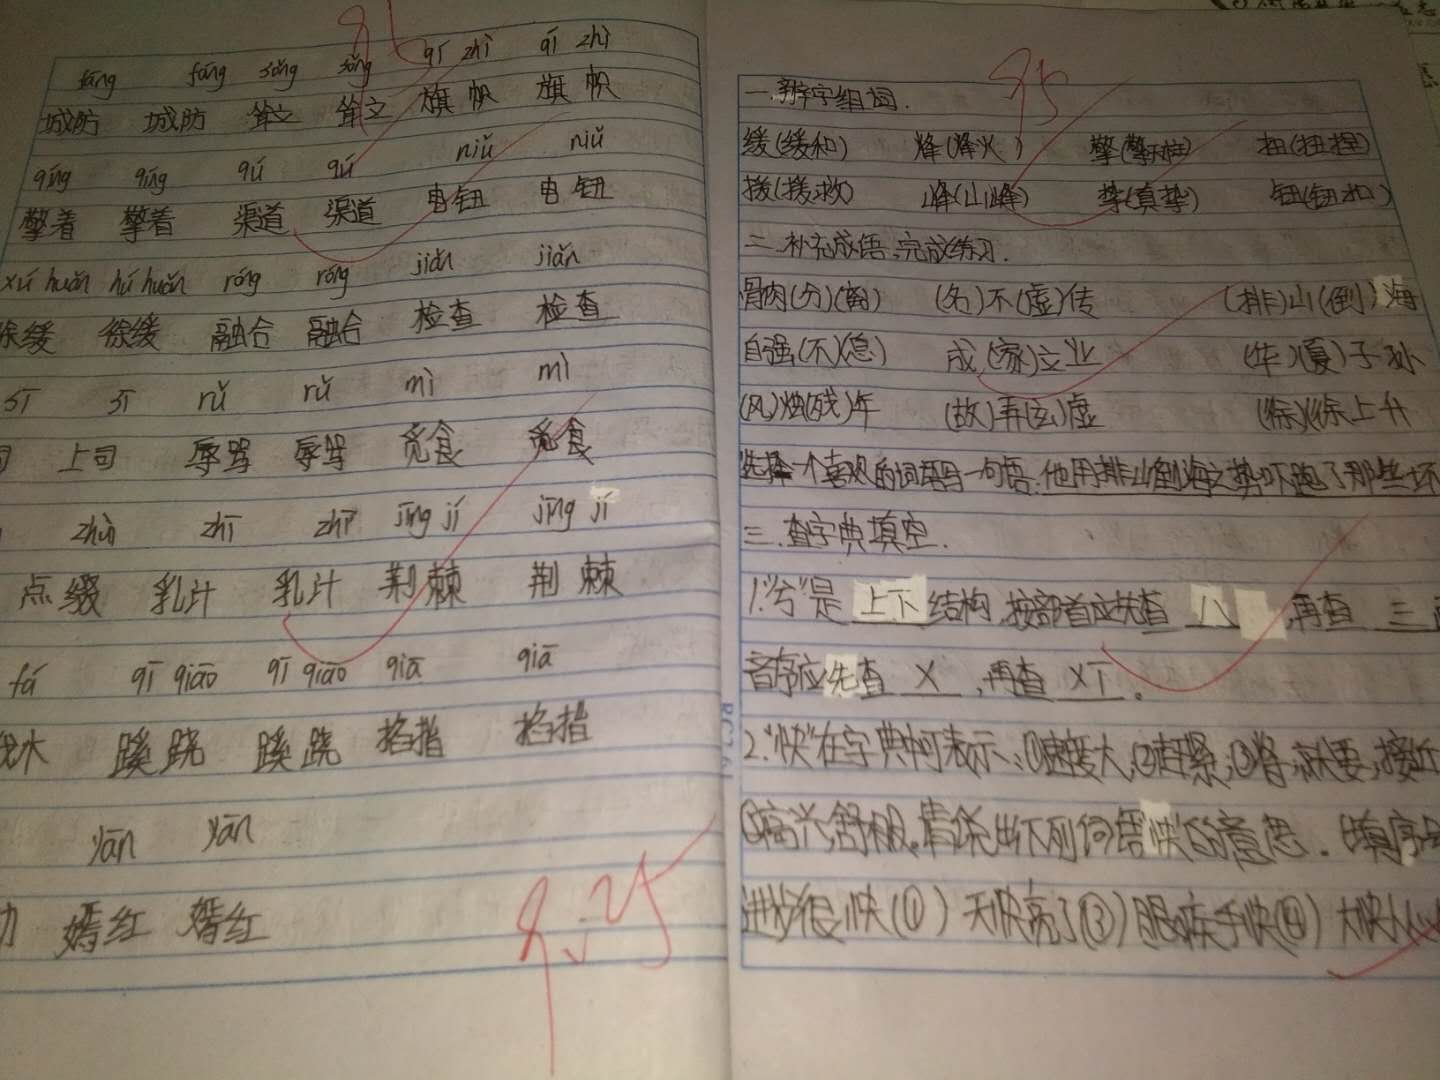 fáng fáng sǒng sǒng qí zhì qí zhì
城防 城防 耸立 耸立 旗帜 旗帜
qíng qíng qú qú niǔ niǔ
擎着 擎着 渠道 渠道 电钮 电钮
xú huǎn hú huǎn róng róng jiǎn jiǎn
徐缓 徐缓 融合 融合 检查 检查
sī sī rǔ rǔ mì mì
司 上司 辱骂 辱骂 觅食 觅食
zhuì zhī zhī jīng jí jīng jí
点缀 乳汁 乳汁 荆棘 荆棘
fá qī qiāo qī qiāo qiā qiā
伐木 蹊跷 蹊跷 掐指 掐指
yān yān
嫣红 嫣红
9.25
95
一.辨字组词.
缓(缓和) 烽(烽火) 擎(擎天柱) 扭(扭捏)
援(援救) 峰(山峰) 挚(真挚) 钮(钮扣)
二.补充成语,完成练习.
骨肉(分)(离) (名)不(虚)传 (排)山(倒)海
自强(不)(息) 成(家)立业 (华)(夏)子孙
(风)烛(残)年 (故)弄(玄)虚 (徐)徐上升
选择一个喜欢的词语写一句话:他用排山倒海之势吓跑了那些坏
三.查字典填空.
1."兮"是 上下 结构,按部首应先查 八 ,再查 三 画
音序应先查 X ,再查 XI 。
2."快"在字典中可表示:①速度大;②赶紧;③将,就要,接近
④高兴,舒服。请说出下列词语"快"的意思.(填序号
进步很快(①) 天快亮了(③) 眼疾手快(④) 大快人心